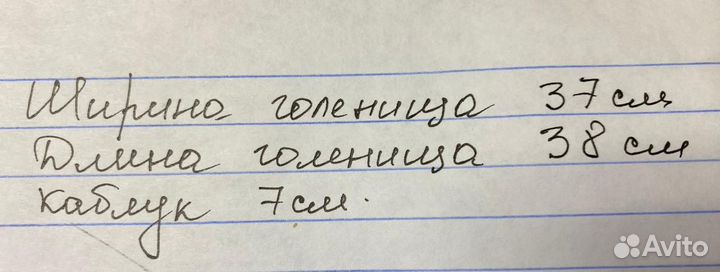 Ширина голенища 37см
Длина голенища 38 см
Каблук 7см.
Avito